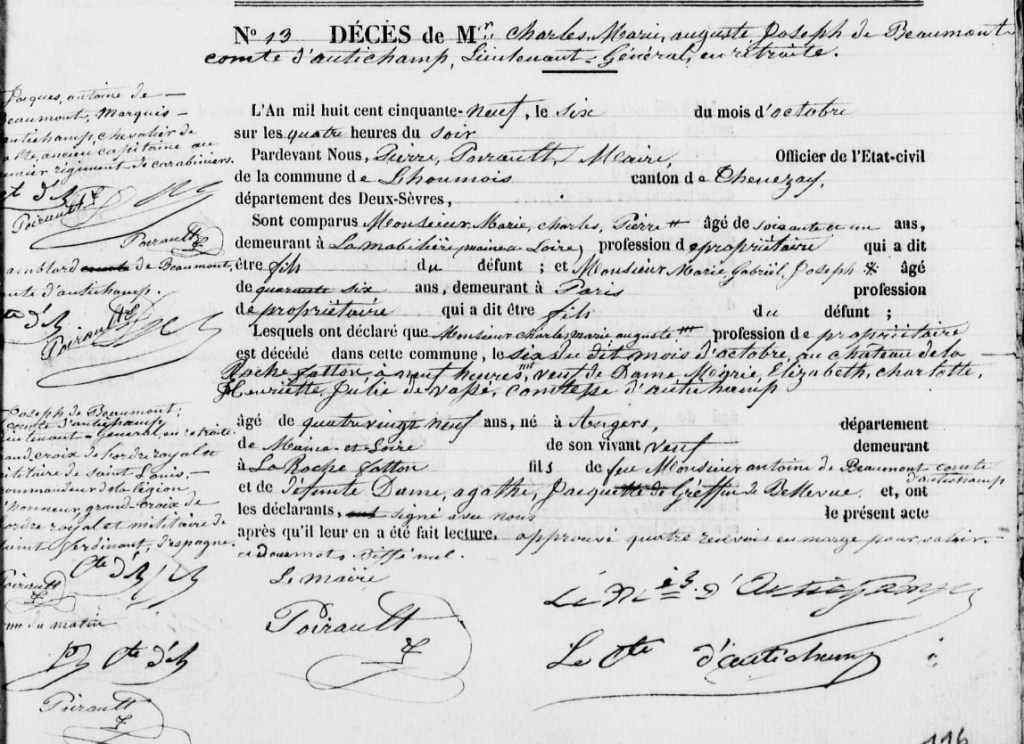 No 13 DÉCÈS de Mr. Charles, Marie, auguste, Joseph de Beaumont
comte d'autichamp, Lieutenant-Général, en retraite.
L'An mil huit cent cinquante-neuf, le six du mois d'octobre
sur les quatre heures du soir
Pardevant Nous, Pierre, Poirault, Maire, Officier de l'Etat-civil
de la commune de Lhoumois canton de Thenezay,
département des Deux-Sèvres,
Sont comparus Monsieur Marie, charles, Pierre # âgé de soixante et un ans,
demeurant à La mabilière, maine & Loire, profession de propriétaire qui a dit
être fils du défunt ; et Monsieur Marie Gabriël, Joseph * âgé
de quarante six ans, demeurant à Paris profession
de propriétaire qui a dit être fils du défunt ;
Lesquels ont déclaré que Monsieur Charles marie auguste ''' profession de propriétaire
est décédé dans cette commune, le six du dit mois d'octobre, au chateau de la
Roche fatton, à neuf heures, '''' veuf de Dame Marie, Elizabeth, charlotte,
Henriette, Julie de Vassé, comtesse d'autichamp
âgé de quatre vingt neuf ans, né à Angers, département
de Maine-et-Loire de son vivant veuf demeurant
à La Roche fatton fils de feu Monsieur antoine de Beaumont comte
d'autichamp
et de défunte Dame, agathe, Jacquette de Greffin de Bellevue. et, ont
les déclarants, signé avec nous le présent acte
après qu'il leur en a été fait lecture. approuvé quatre renvois en marge pour valoir
et douze mots rayés nul.
Le maire
Poirault
Le Mis. d'Autichamp
Le Cte d'autichamp
Jacques, antoine de
Beaumont, Marquis
autichamp, chevalier de
ancien capitaine au
régiment de carabiniers.
Cte d'A
Poirault
Poirault
amblard comte de Beaumont,
comte d'autichamp.
Cte d'A
Poirault
Joseph de Beaumont,
comte d'autichamp
Lieutenant-Général, en retraite
grand croix de l'ordre royal et
militaire de Saint Louis,
commandeur de la légion
d'honneur, grand croix de
l'ordre royal et militaire de
Saint ferdinant, d'espagne.
Cte d'A
Poirault
du matin
Cte d'A
Poirault
116